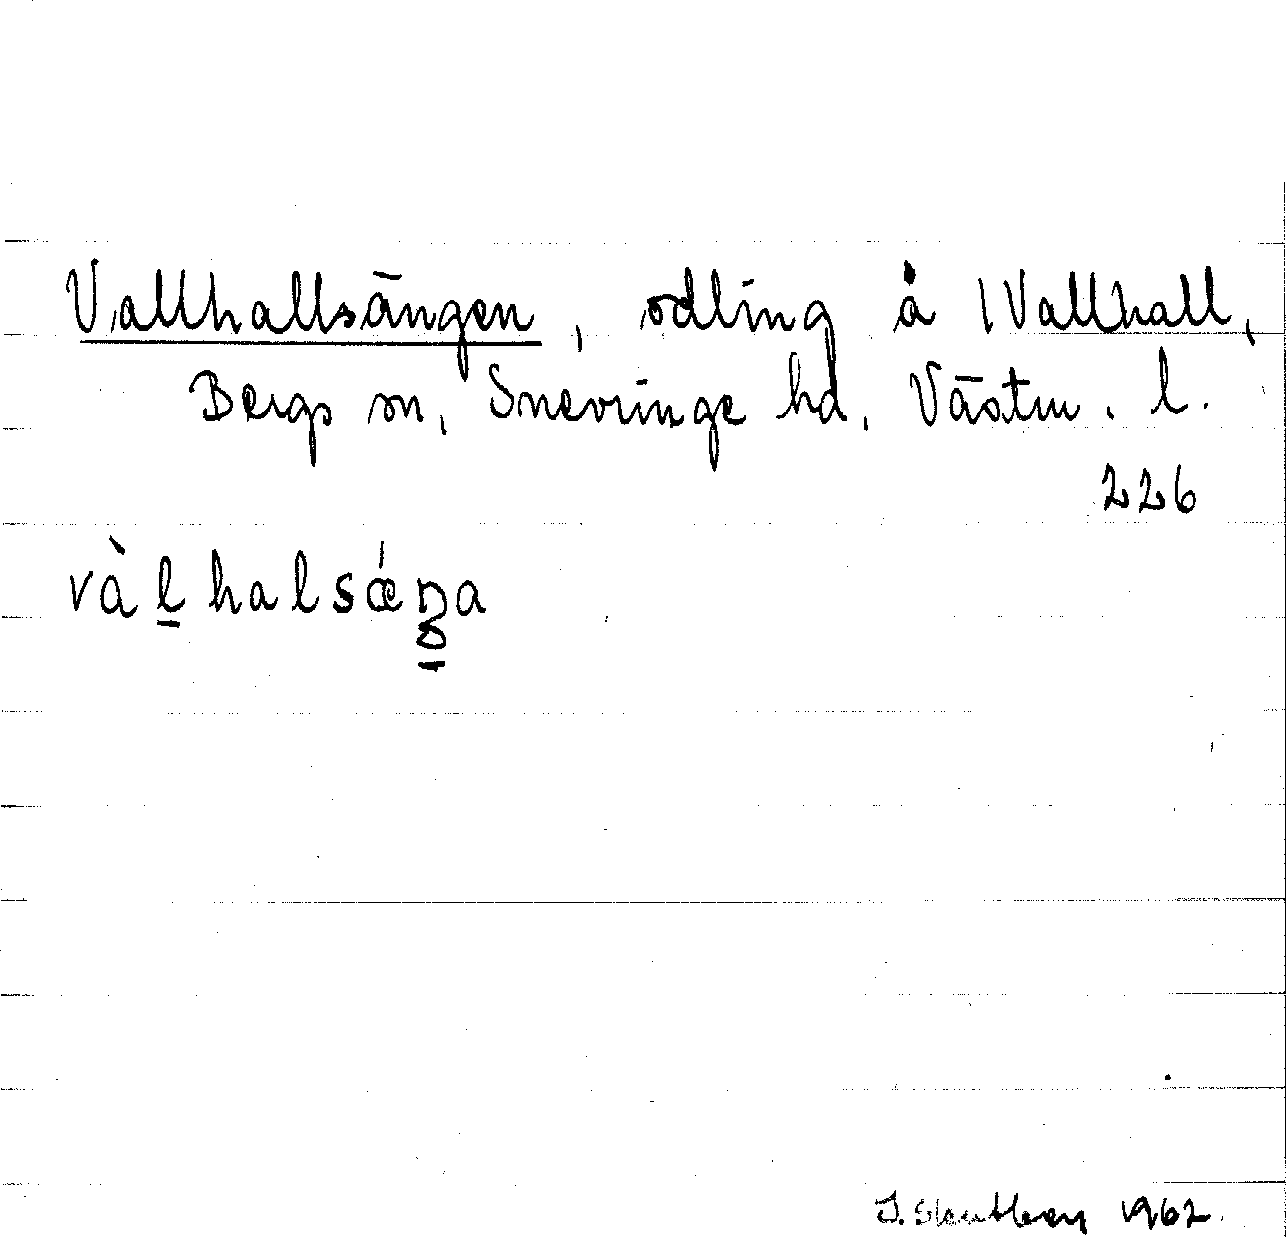 Vallhallsängen, odling å 1 Vallhall,
Bergs sn, Snevringe hd, Västm. l.
226
vàl̲halsǽŋ̲a
1962